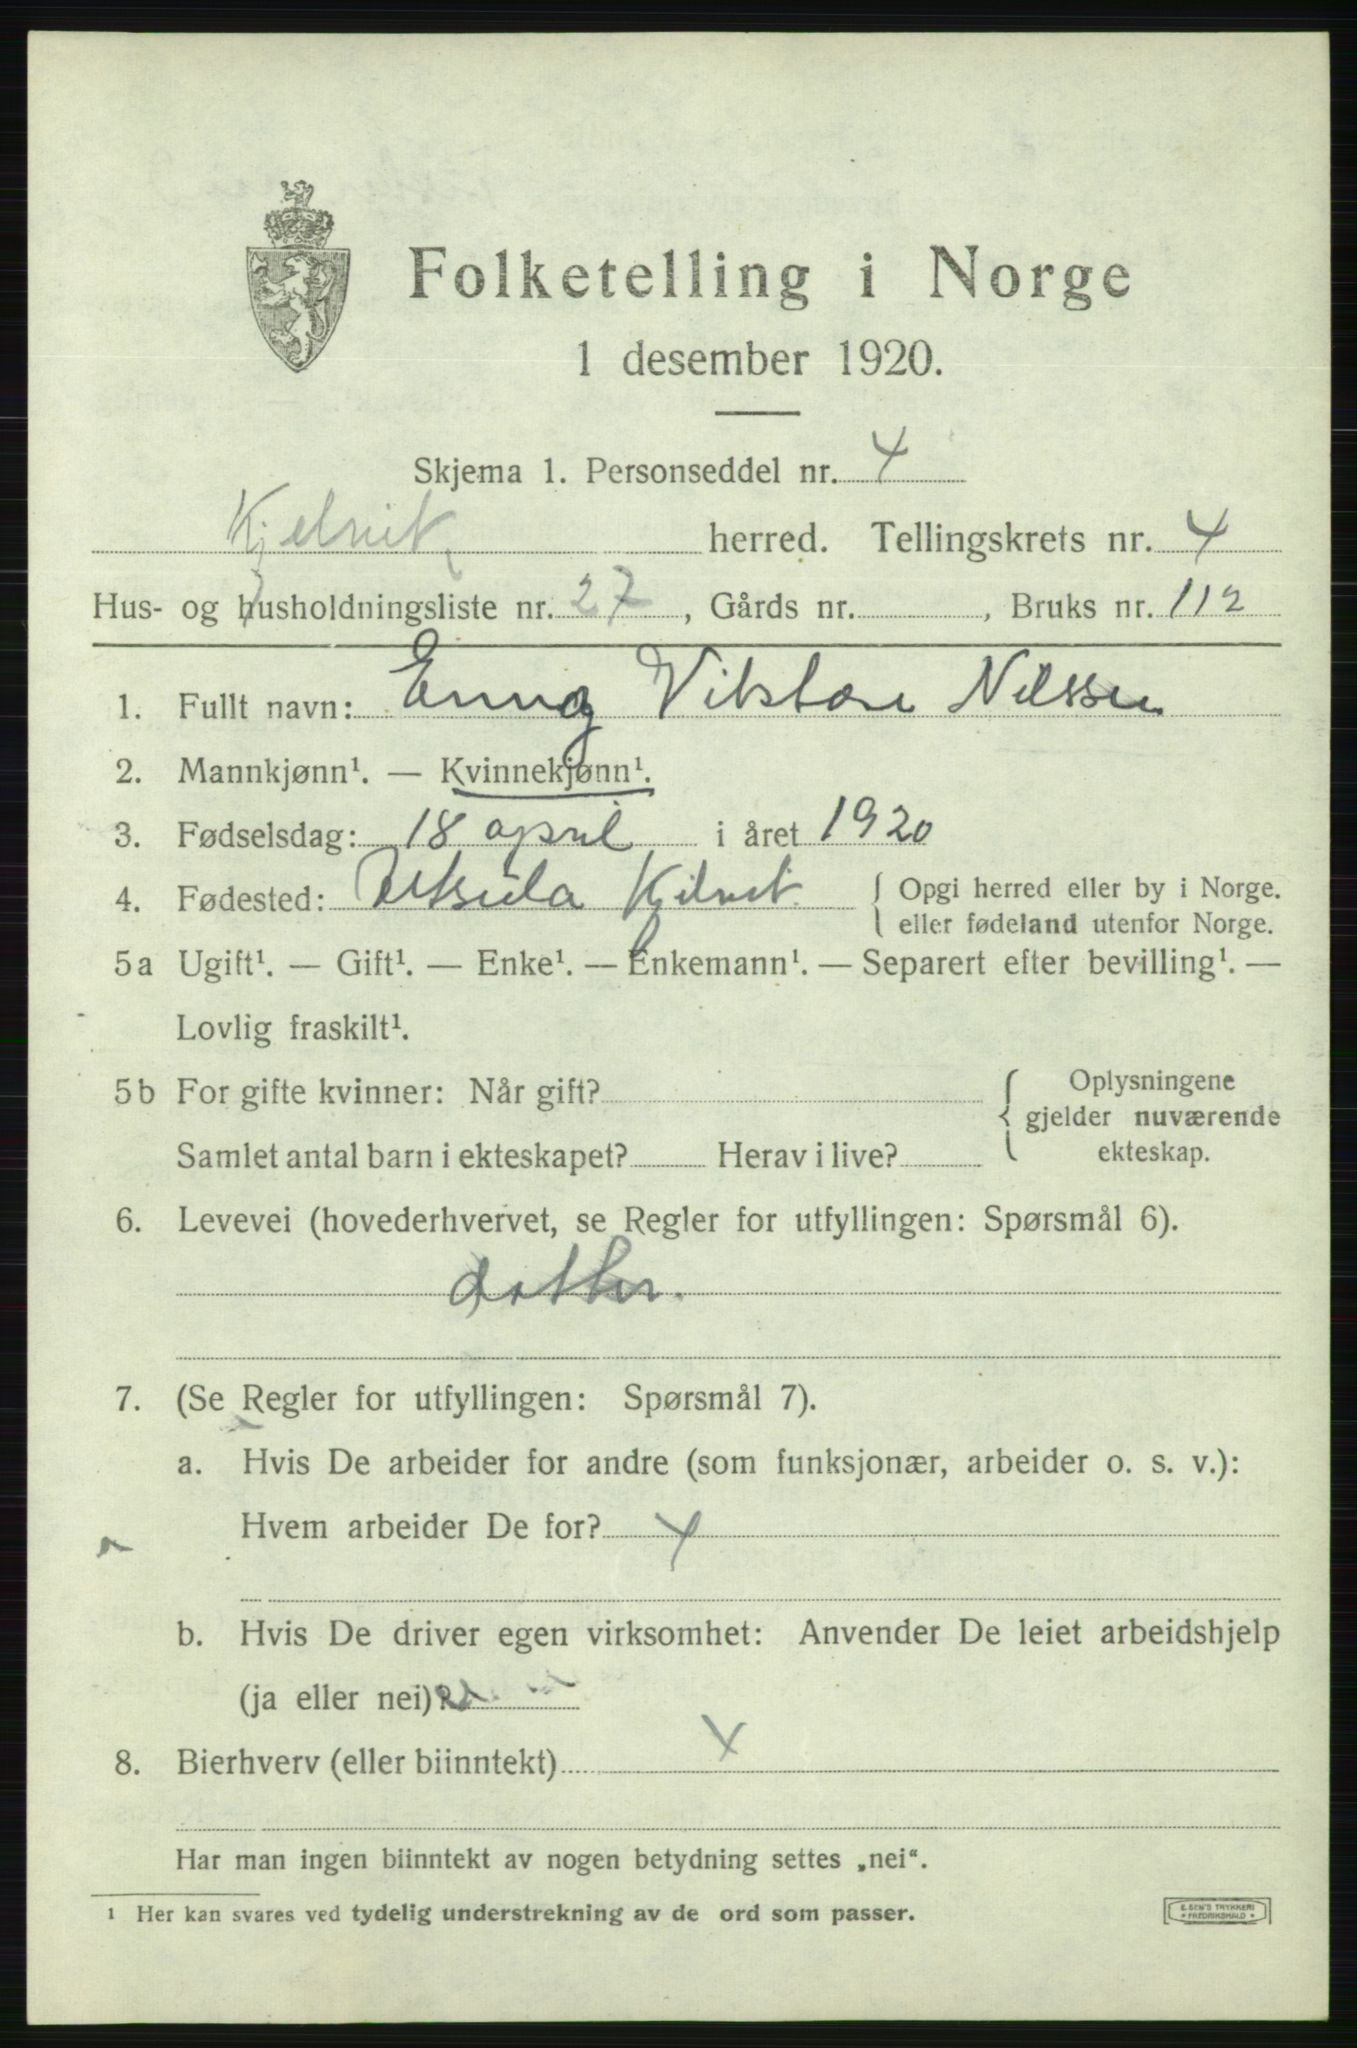 Folketelling i Norge
1 desember 1920.
Skjema 1. Personseddel nr. 4
Kjelvik herred. Tellingskrets nr. 4
Hus- og husholdningsliste nr. 27, Gårds nr. , Bruks nr. 112
1. Fullt navn: Enny Nilssen
2. Mannkjønn¹. — Kvinnekjønn¹.
3. Fødselsdag: 18 april i året 1920
4. Fødested: Kjelvik { Opgi herred eller by i Norge.
eller fødeland utenfor Norge.
5a Ugift¹. — Gift¹. — Enke¹. — Enkemann¹. — Separert efter bevilling¹. —
Lovlig fraskilt¹.
5b For gifte kvinner: Når gift? { Oplysningene
gjelder nuværende
Samlet antal barn i ekteskapet? Herav i live? ekteskap.
6. Levevei (hovederhvervet, se Regler for utfyllingen: Spørsmål 6).
datter.
7. (Se Regler for utfyllingen: Spørsmål 7).
a. Hvis De arbeider for andre (som funksjonær, arbeider o. s. v.):
Hvem arbeider De for? x
b. Hvis De driver egen virksomhet: Anvender De leiet arbeidshjelp
(ja eller nei)?
8. Bierhverv (eller biinntekt) x
Har man ingen biinntekt av nogen betydning settes „nei“.
¹ Her kan svares ved tydelig understrekning av de ord som passer.
E. SEN'S TRYKKERI
* FREDRIKSHALD *